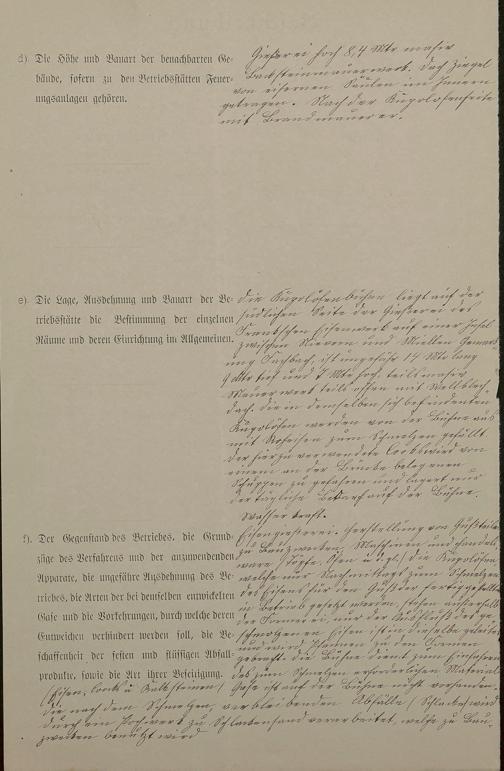 d) Die Höhe und Bauart der benachbarten Ge-
bäude, sofern zu den Betriebsstätten Feuer-
ungsanlagen gehören.
Gießerei hoch 8,4 Mtr massiv
Backsteinmauerwerk. Dach Ziegel
von eisernen Säulen im Innern
getragen. Nach der Kupolofenseite
mit Brandmauer er.
e) Die Lage, Ausdehnung und Bauart der Be-
triebsstätte die Bestimmung der einzelnen
Räume und deren Einrichtung im Allgemeinen.
Die Kupolofenbühne liegt auf der
südlichen Seite der Gießerei des
Eisenwerk auf einer Insel
zwischen Nievern und Miellen Gemark
ung Fachbach, ist ungefähr 14 Mtr lang
9 Mtr tief und 7 Mtr hoch. teils massiv
Mauerwerk teils offen mit Wellblech
dach. die in demselben sich befindenden
Kupolöfen werden von der Bühne aus
mit Roheisen zum Schmelzen gefüllt
der hierzu verwendete Cooks wird von
einem an der Binde belegenen
Schuppen zu gefahren und lagert nur
der tägliche Bedarf auf der Bühne.
Wasserkraft.
f) Der Gegenstand des Betriebes, die Grund-
züge des Verfahrens und der anzuwendenden
Apparate, die ungefähre Ausdehnung des Be-
triebes, die Arten der bei demselben entwickelten
Gase und die Vorkehrungen, durch welche deren
Entweichen verhindert werden soll, die Be-
schaffenheit der festen und flüssigen Abfall-
produkte, sowie die Art ihrer Beseitigung.
Eisengiesserei. Herstellung von Gußteilen
zu Bauzwecken, Maschinen und Handels
ware (Töpfe, Öfen u.d.gl.) die Kupolöfen
welche nur Nachmittags zum Schmelzen
des Eisens für den Guß der fertiggestellten
in Betrieb gesetzt werden, stehen außerhalb
der Formerei, nur der Ausfluß des ge
schmolzenen Eisen ist in dieselbe geleitet
und wird in den Formen
gebracht. die Bühne dient zum Einfahren
des zum Schmelzen erforderlichen Material
(Eisen, Cooks u Kalksteinen) Gase ist auf der Bühne nicht vorhanden.
die nach dem Schmelzen, verbleibenden Abfälle (Schlacke) wird
durch ein Pochwerk zu Schlackensand verarbeitet, welche zu Bau-
zwecken benutzt wird